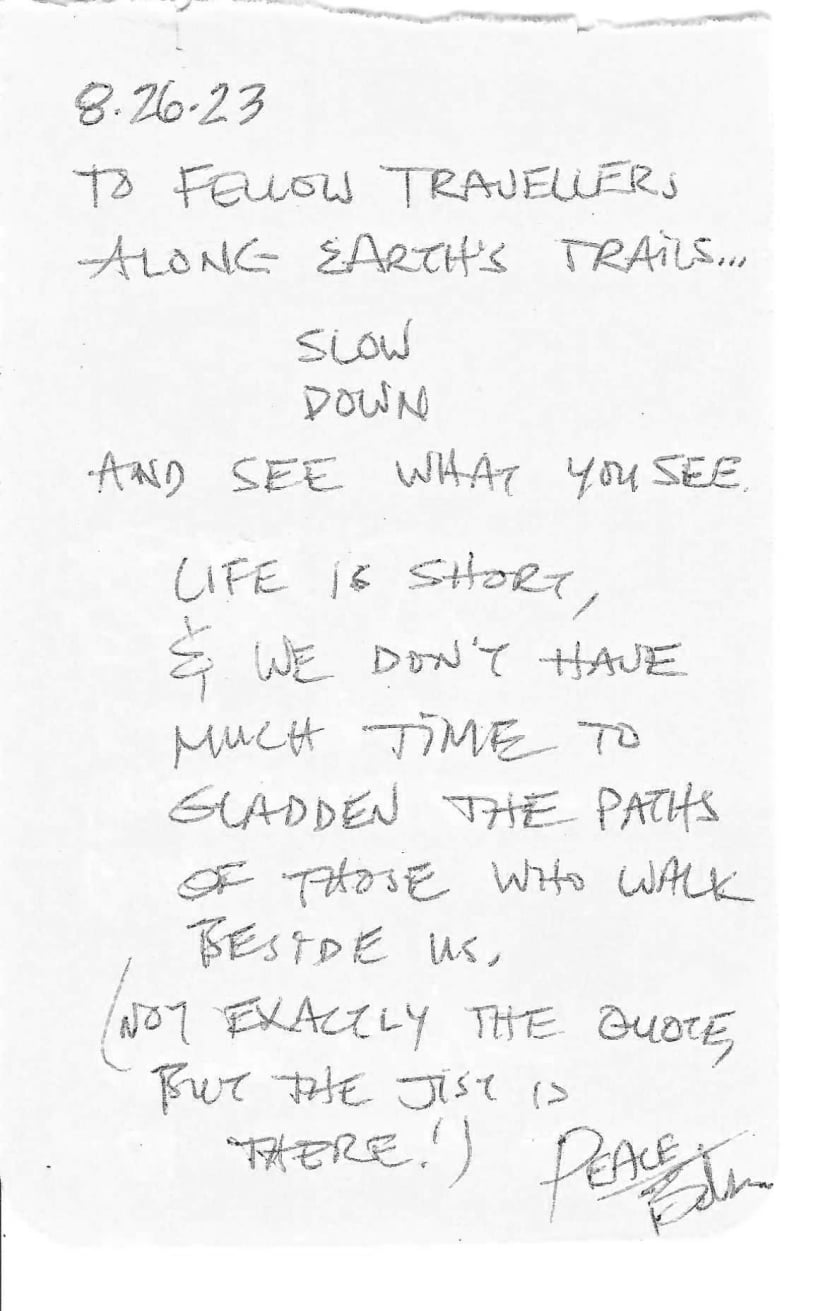 8.26.23
TO FELLOW TRAVELLERS
ALONG EARTH'S TRAILS...
SLOW
DOWN
AND SEE WHAT YOU SEE.
LIFE IS SHORT,
& WE DON'T HAVE
MUCH TIME TO
GLADDEN THE PATHS
OF THOSE WHO WALK
BESIDE US.
(NOT EXACTLY THE QUOTE,
BUT THE JIST IS
THERE!)
PEACE